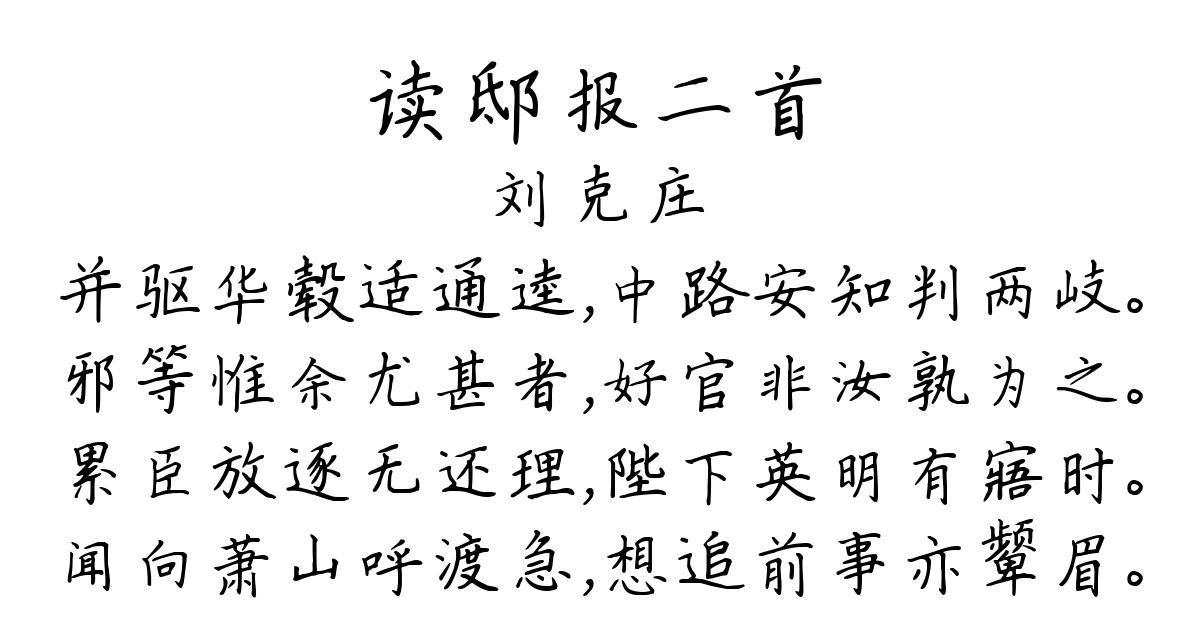 读邸报二首
刘克庄
并驱华毂适通逵,中路安知判两岐。
邪等惟余尤甚者,好官非汝孰为之。
累臣放逐无还理,陛下英明有寤时。
闻向萧山呼渡急,想追前事亦颦眉。